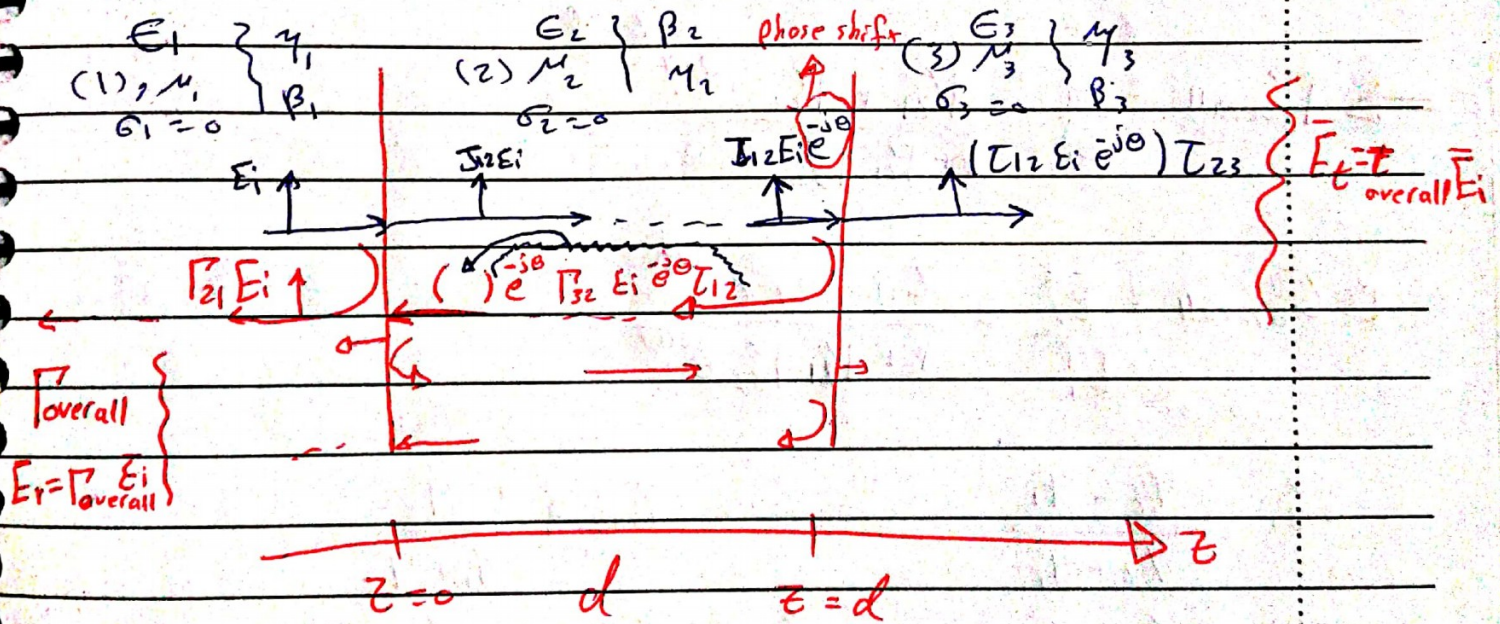 ϵ1 } η1
(1), μ1 } β1
σ1 = 0
ϵ2 } β2
(2) μ2 } η2
σ2 = 0
phose shift
ϵ3 } η3
(3) μ3 } β3
σ3 = 0
Ei
τ12Ei
τ12Ei e^-jθ
(τ12 Ei e^-jθ) τ23
Ēt = τ overall Ēi
Γ21 Ei
( ) e^-jθ Γ32 Ei e^-jθ τ12
Γoverall
Er = Γoverall Ei
z
z=0 d z=d